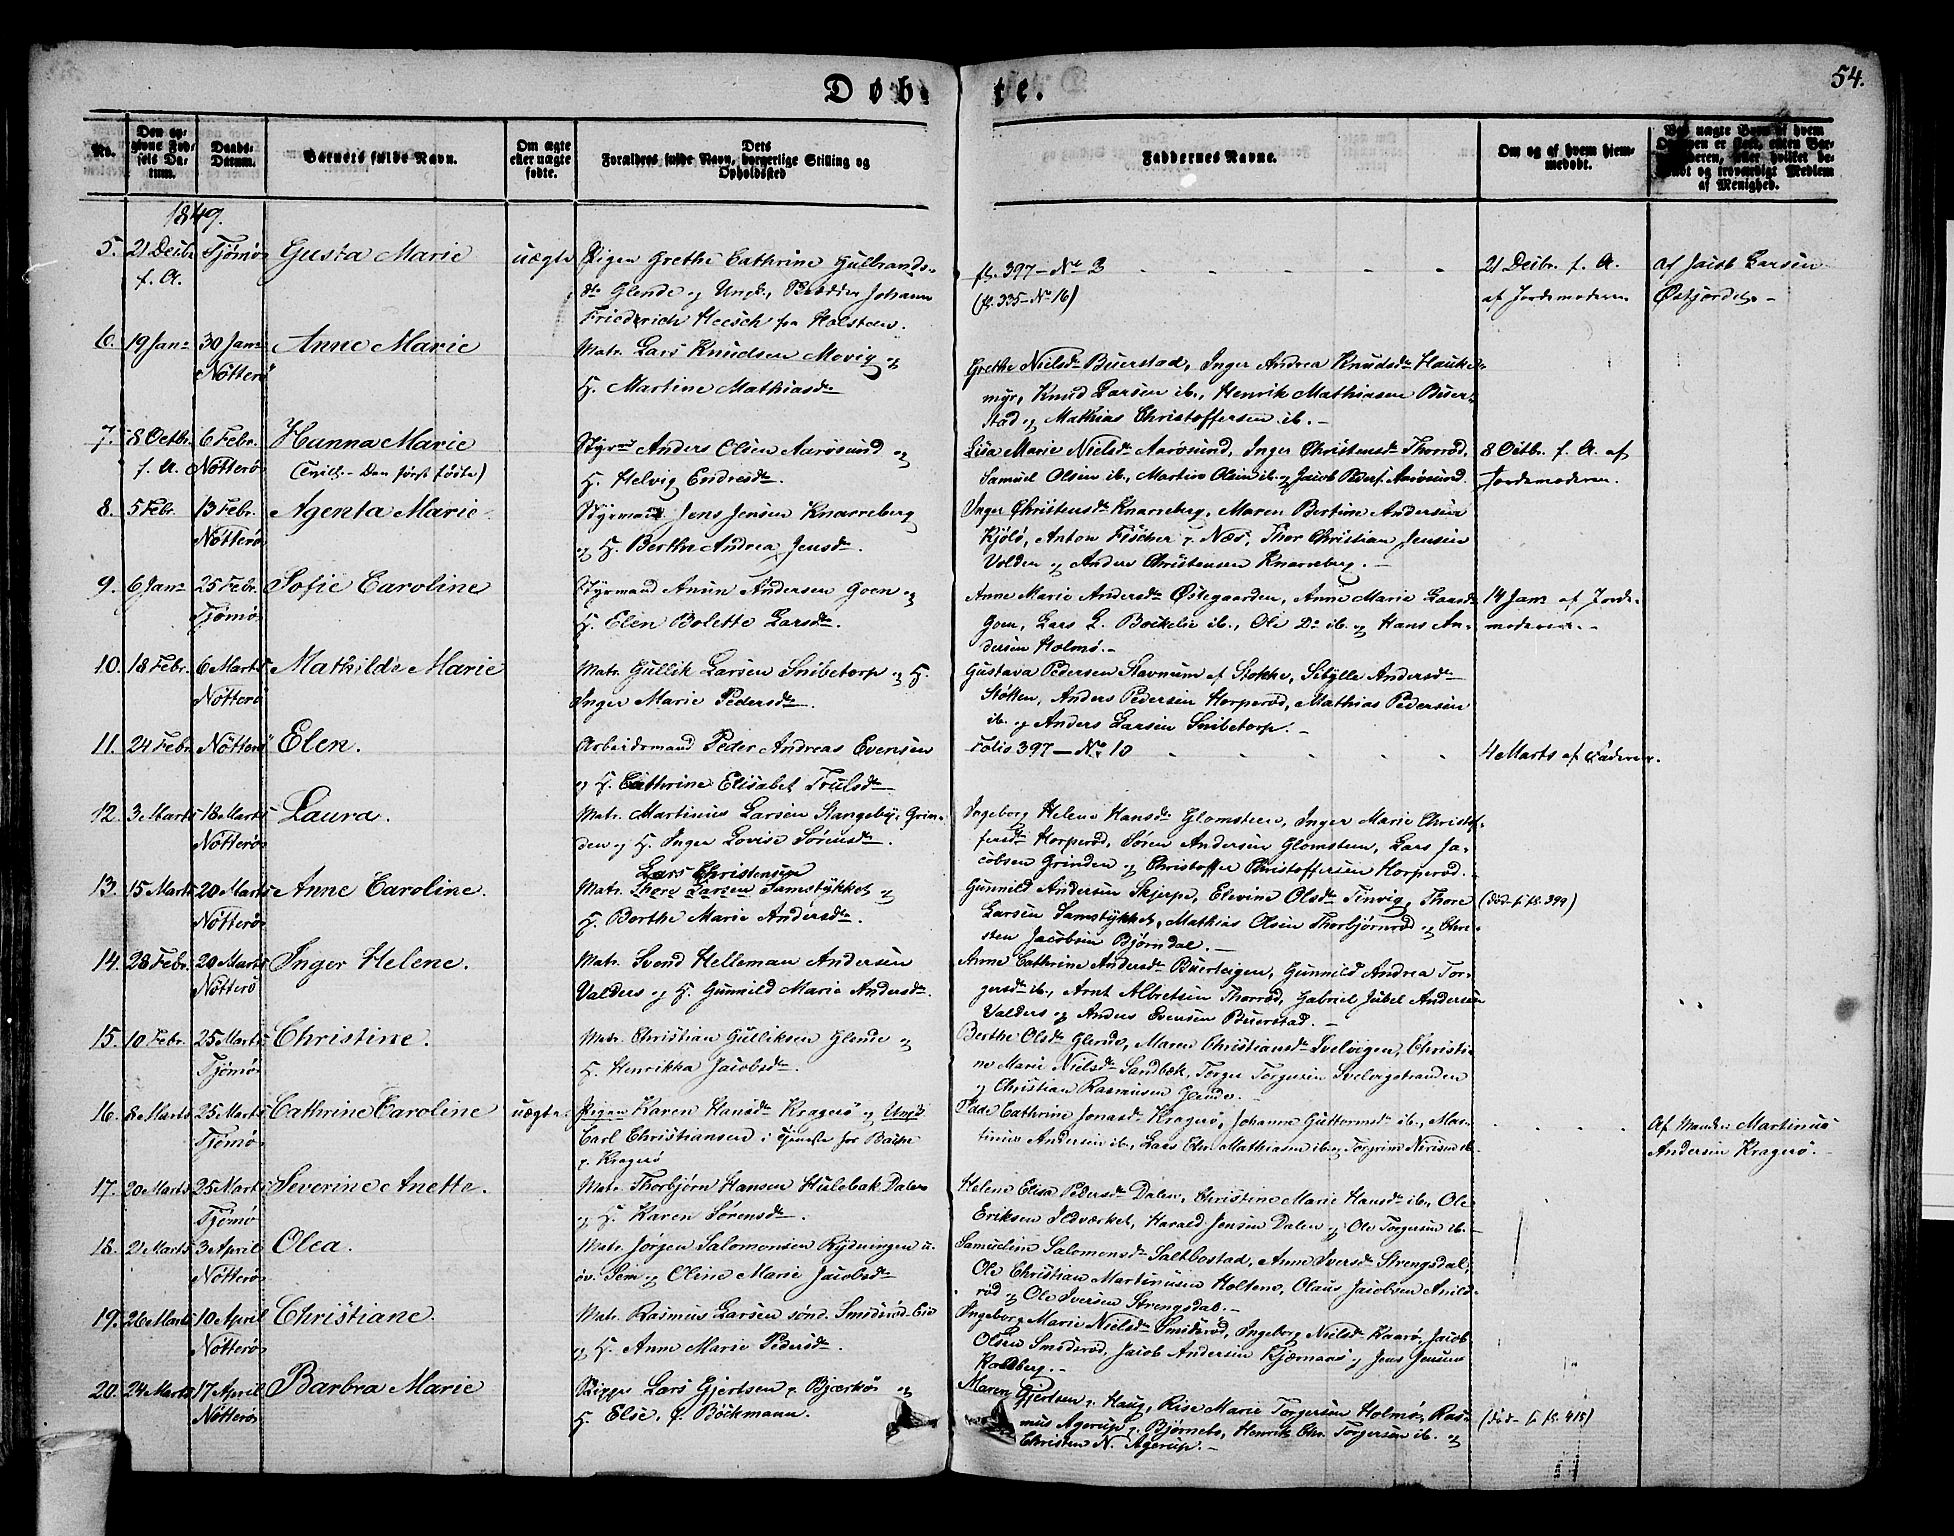 Døb-te.
54.
No.
Den opgivne Fødsels Datum.
Daabs-Datum.
Barnets fulde Navn.
Om ægte eller uægte fødte.
Dets Forældres fulde Navn, borgerlige Stilling og Opholdssted
Faddernes Navne.
Om og af hvem hjemmedøbt.
1849.
5. 21 Decbr f. A. Tjømø Gusta Marie uægte Pigen Grethe Cathrine Gulbrands-
dtr Glende og Ungk. Brødder Johann
Friederich Heesch fra Holsteen.
fl. 397 - No 3
(fl. 335 - No 16)
21 Decbr. f. A.
af Jordemoderen
Af Jacob Larsen
Østjordet -
6. 19 Janr 30 Janr Nötterö Anne Marie
Matr. Lars Knudsen Movig og
H. Martine Mathiasdtr
Grethe Nielsdtr Buerstad, Inger Andrea Knudsdtr Hauke-
myr, Knud Larsen ib., Henrik Mathiasen Buer-
stad og Mathias Christoffersen ib. -
7. 8 Octbr. f. A. 6 Febr. Nötterö Hanna Marie
(Tvill. - Den først fødte)
Styrmd Anders Olsen Aarøsund og
H. Helvig Endresdtr.
Lisa Marie Nielsdtr Aarøsund, Inger Christensdtr Thorrød,
Samuel Olsen ib., Martin Olsen ib. og Jacob Peders. Aarøsund.
8 Octbr. f. A. af
Jordemoderen.
8. 5 Febr. 13 Febr. Nötterö Agenta Marie
Styrmand Jens Jensen Knarreberg
og H. Berthe Andrea Jensdtr.
Inger Christensdtr Knarreberg, Maren Bertine Andersen
Kjölö, Anton Fischer p. Næs, Thor Christian Jensen
Volden og Anders Christensen Knarreberg. -
9. 6 Janr 25 Febr. Tjømø Sofie Caroline
Styrmand Anun Andersen Goen og
H. Elen Bolette Larsdtr.
Anne Marie Andersdtr Østegaarden, Anne Marie Larsdtr
Goen, Lars L. Bockelie ib., Ole Do ib. og Hans An-
dersen Holmø. -
14 Janr af Jorde-
moderen. -
10. 18 Febr. 6 Marts Nötterö Mathilde Marie
Matr. Gullik Larsen Snibetorp og H.
Inger Marie Pedersdtr.
Gustava Pedersen Stavnum af Stokke, Sibylle Andersdtr
Støtten, Anders Pedersen Horperød, Mathias Pedersen
ib. og Anders Larsen Snibetorp. -
11. 24 Febr. Nötterö Elen.
Arbeidsmand Peder Andreas Evensen
og H. Cathrine Elisabet Trulsdtr
Folio 397 - No 10
4 Marts af Faderen.
12. 3 Marts 18 Marts Nötterö Laura.
Matr. Martinus Larsen Stangeby, Grin-
den og H. Inger Lovise Sørensdtr.
Ingeborg Helene Hansdtr Glomsteen, Inger Marie Christof-
fersdtr Horperød, Søren Andersen Glomsteen, Lars Ja-
cobsen Grinden og Christoffer Christoffersen Horperød. -
Lars Christensen
13. 15 Marts 20 Marts Nötterö Anne Caroline.
Matr. Thore Larsen Samstykket og
H. Berthe Marie Andersdtr.
Gunnild Andersen Skjerpe, Elevine Olsdtr Tinvig, Thore
Larsen Samstykket, Mathias Olsen Thorbjørnrød og Chri-
sten Jacobsen Bjørndal. -
(død - fl. 399)
14. 28 Febr. 20 Marts Nötterö Inger Helene.
Matr. Svend Helleman Andersen
Valders og H. Gunnild Marie Andersdtr.
Anne Cathrine Andersdtr Buerteigen, Gunnild Andrea Tor-
gersdtr ib., Arnt Albretsen Thorrød, Gabriel Jubel Andersen
Valders og Anders Evensen Buerstad. -
15. 10 Febr. 25 Marts Tjømø Christine.
Matr. Christian Gulliksen Glende og
H. Henrikka Jacobsdtr.
Berthe Olsdtr Glende, Maren Christiansdtr Svelvigen, Christi-
ne Marie Nielsdtr Sandbæk, Torger Torgersen Svelvigstranden
og Christian Rasmusen Glende.
16. 8 Marts 25 Marts Tjømø Cathrine Caroline uægte.
Pigen Karen Hansdtr Kragerø og Ungk.
Carl Christiansen i Tjeneste hos Bache
p. Kragerø
Cathrine Jonasdtr Kragerø, Johanne Guttormsdtr ib., Mar-
tinus Andersen ib., Lars Chr. Mathiasen ib. og Torgrim Nirisen ib.
Af Manden Martinus
Andersen Kragerø. -
17. 20 Marts 25 Marts Tjømø Severine Anette.
Matr. Thorbjørn Hansen Hulebak Dalen
og H. Karen Sørensdtr.
Helene Elisa Pedersdtr Dalen, Christine Marie Hansdtr ib., Ole
Eriksen Ildværket, Harald Jensen Dalen og Ole Torgersen ib. -
18. 2 Marts 3 April Nötterö Olea.
Matr. Jørgen Salomonsen Rydningen u.
øv. Sem og Oline Marie Jacobsdtr
Samueline Salomonsdtr Saltbostad, Anne Iversdtr Strengsdal,
Ole Christian Martinusen Holtene, Olaus Jacobsen Arild-
rød og Ole Iversen Strengsdal. -
19. 26 Marts 10 April Nötterö Christiane.
Matr. Rasmus Larsen sönd. Smidsrød Eie
og H. Anne Marie Pedersdtr.
Ingeborg Marie Nielsdtr Smidsrød, Ingeborg Nielsdtr Kaarø, Jacob
Olsen Smidsrød, Jacob Andersen Kjærnaas og Jens Jensen
Kaldberg. -
20. 24 Marts 17 April Nötterö Barbra Marie
Skipper Lars Gjertsen p. Bjerkøs og
H. Elie, f. Böckmann.
Maren Gjertsen p. Haug, Rise Marie Torgersen Holmø, Ras-
mus Agerup p. Bjørnebo, Henrik Chr. Torgersen ib. og
Christen N. Agerup. -
(død - fl. 415)